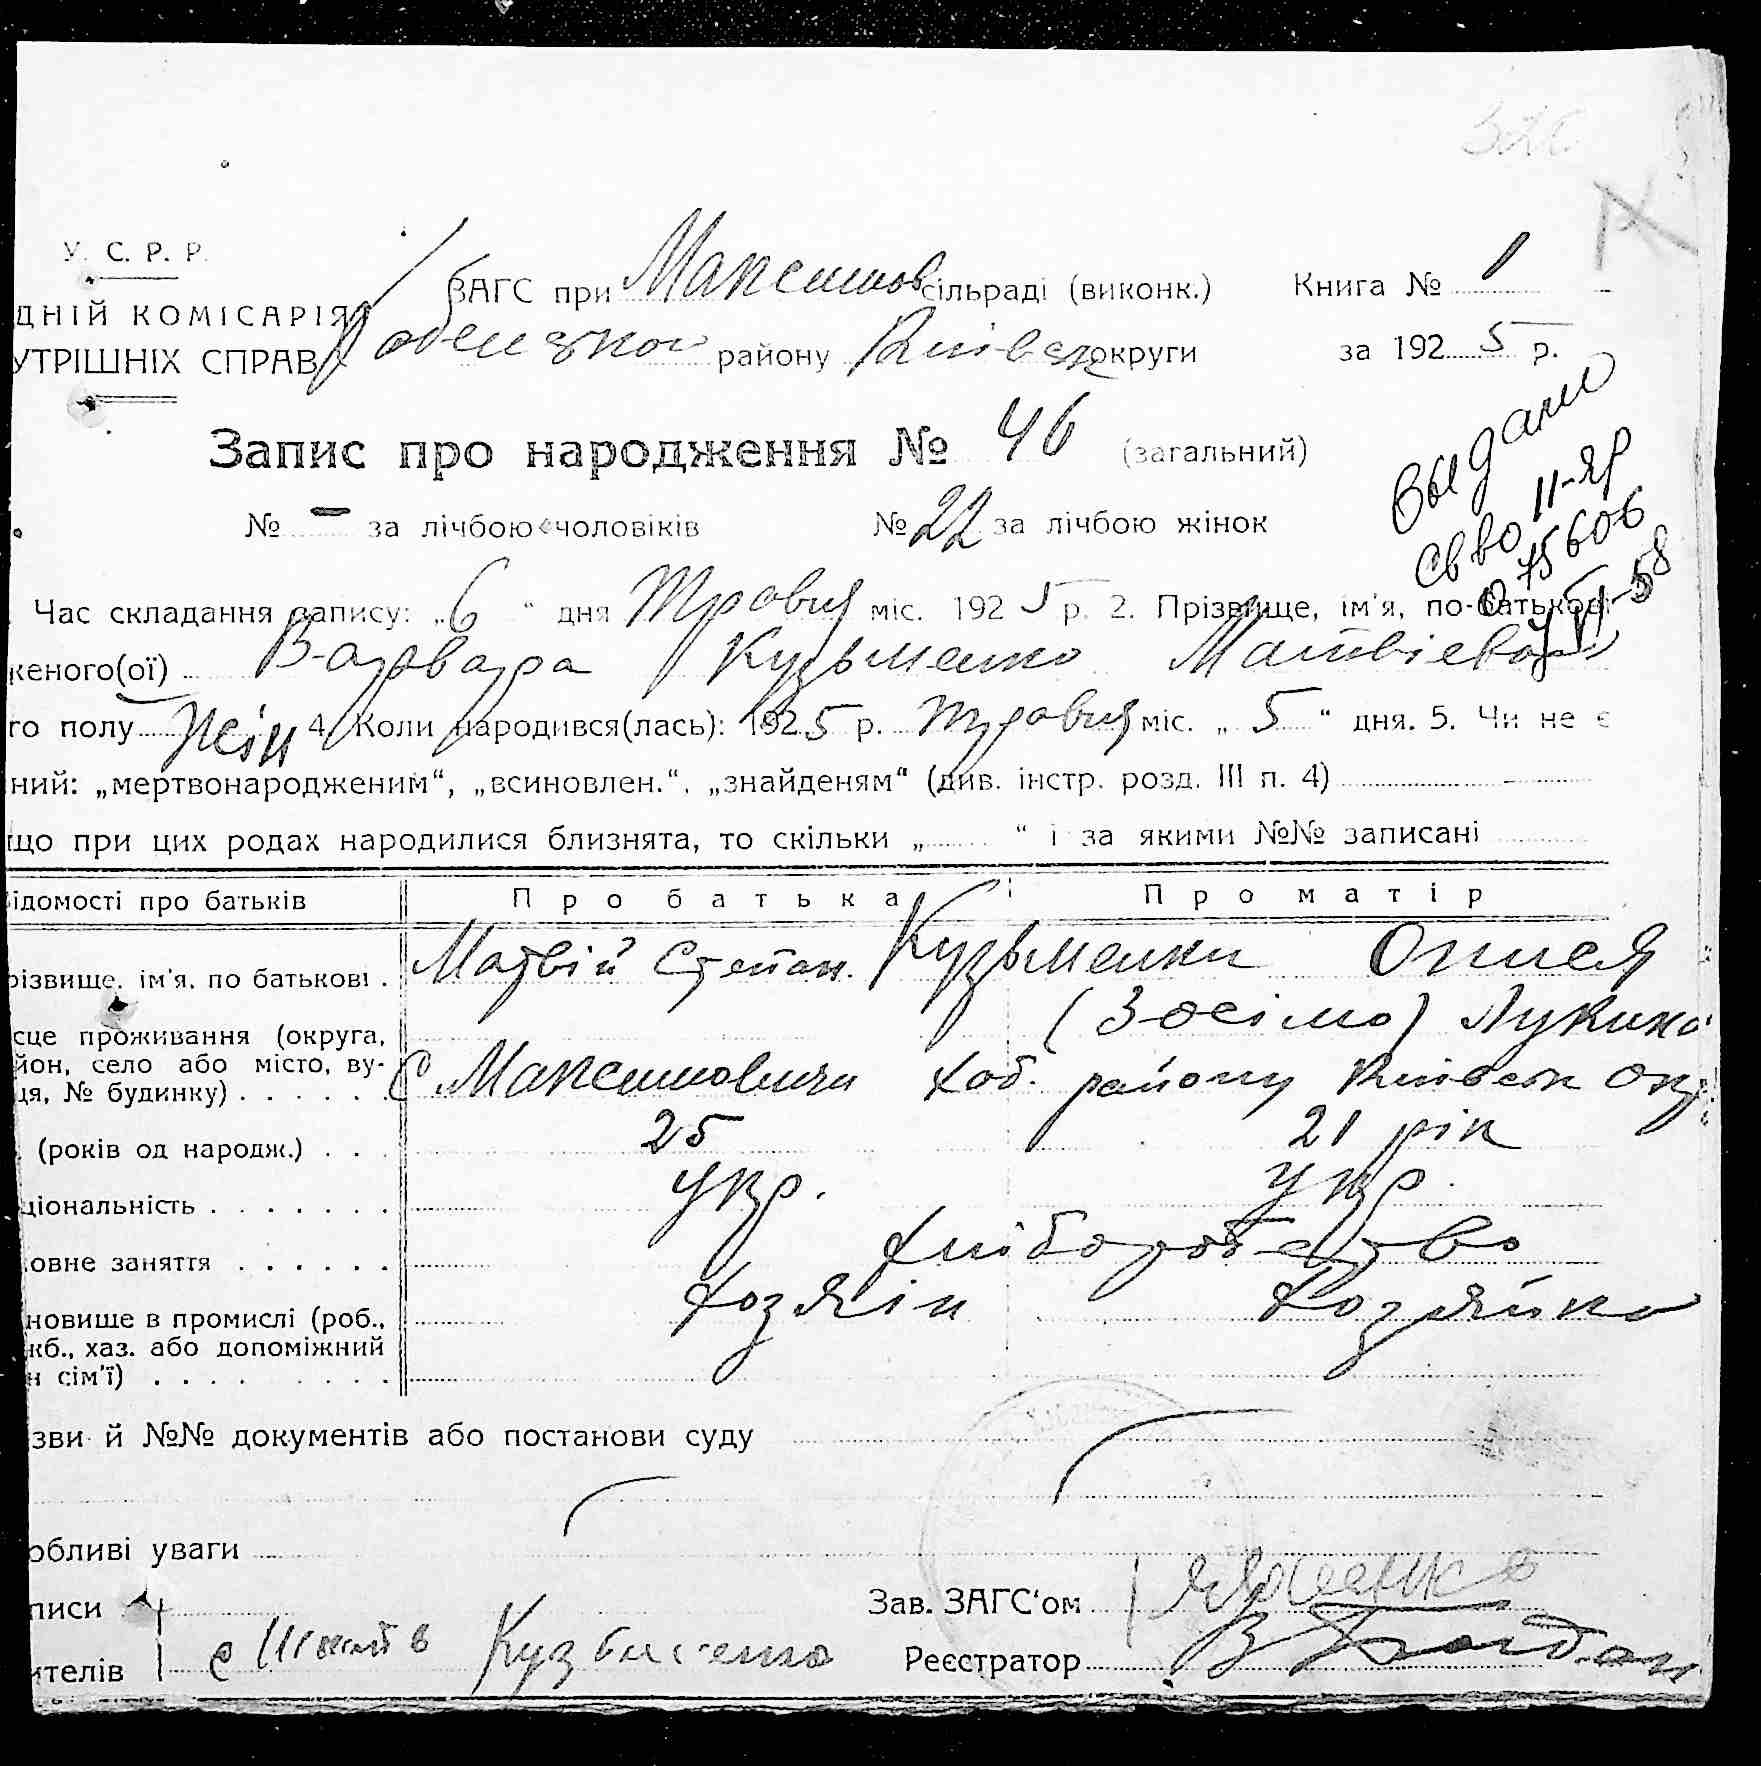 У. С. Р. Р.
ДНІЙ КОМІСАРІЯ
УТРІШНІХ СПРАВ
ЗАГС при Максимов сільраді (виконк.) Книга № 1
району Київськ округи за 1925 р.
Запис про народження № 46 (загальний)
№ - за лічбою чоловіків № 22 за лічбою жінок
Выдано
св во 11-ЯР
075606
Час складання запису: „6“ дня Травня міс. 1925 р. 2. Прізвище, ім'я, по-батькові
женого(ої) Варвара Кузьменко Матвієвна
го полу жін 4. Коли народився(лась): 1925 р. травня міс. „5“ дня. 5. Чи не є
ний: „мертвонародженим“, „всиновлен.“, „знайденям“ (див. інстр. розд. III п. 4)
що при цих родах народилися близнята, то скільки „ “ і за якими №№ записані
ідомості про батьків Про батька Про матір
різвище, ім'я, по батькові . Матвій Степан. Кузьменки
(Зосіма) Лукина
сце проживання (округа,
йон, село або місто, ву-
ця, № будинку) . . . . . . С Максимовичи Хоб. району Київськ окр
(років од народж.) . . . 25 21 рік
ціональність . . . . . . . Укр. Укр.
овне заняття . . . . . . Хліборобство
новище в промислі (роб.,
жб., хаз. або допоміжний
н сім'ї) . . . . . . . . . Хозяїн Хозяйка
зви й №№ документів або постанови суду
обливі уваги
писи
ителів Кузьменко
Зав. ЗАГС'ом
Реєстратор